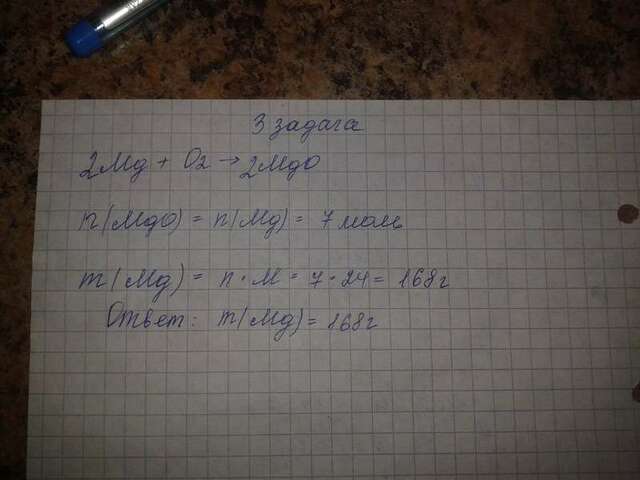 3 задача
2Mg + O2 → 2MgO
n(MgO) = n(Mg) = 7 моль
m(Mg) = n · M = 7 · 24 = 168г
Ответ: m(Mg) = 168г